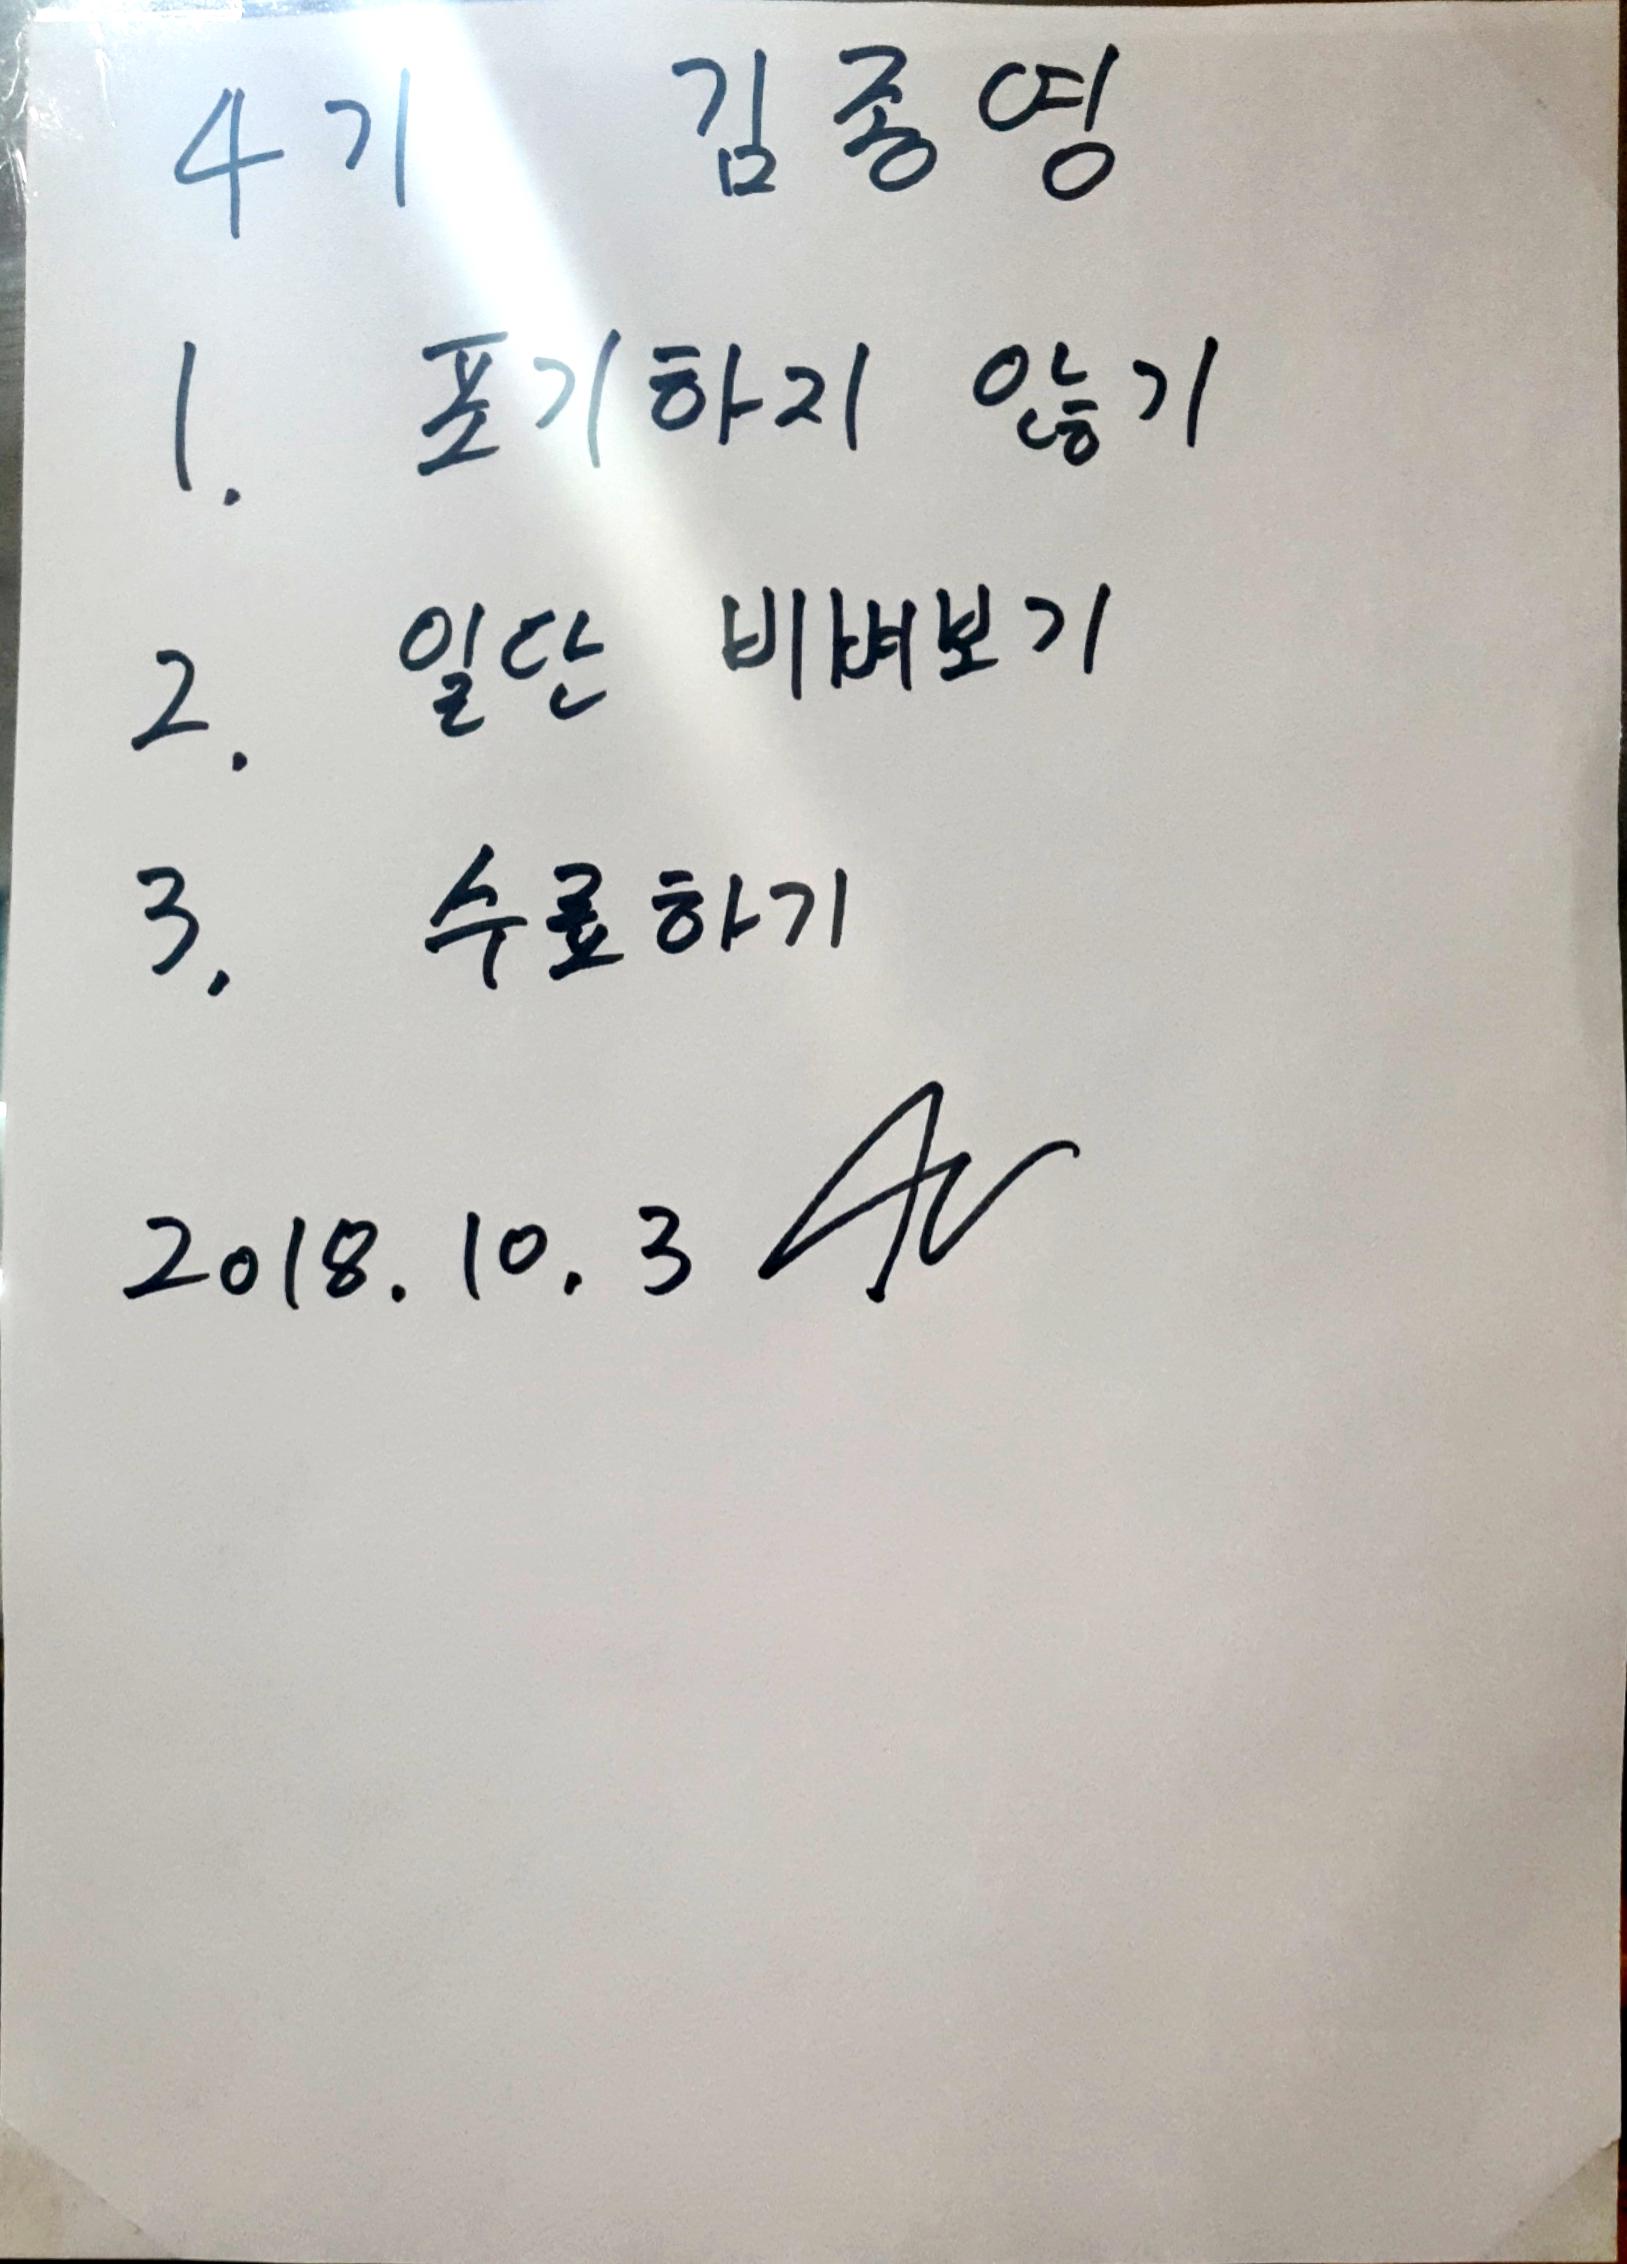 4기 김종영
1. 포기하지 않기
2. 일단 비벼보기
3. 수료하기
2018. 10. 3